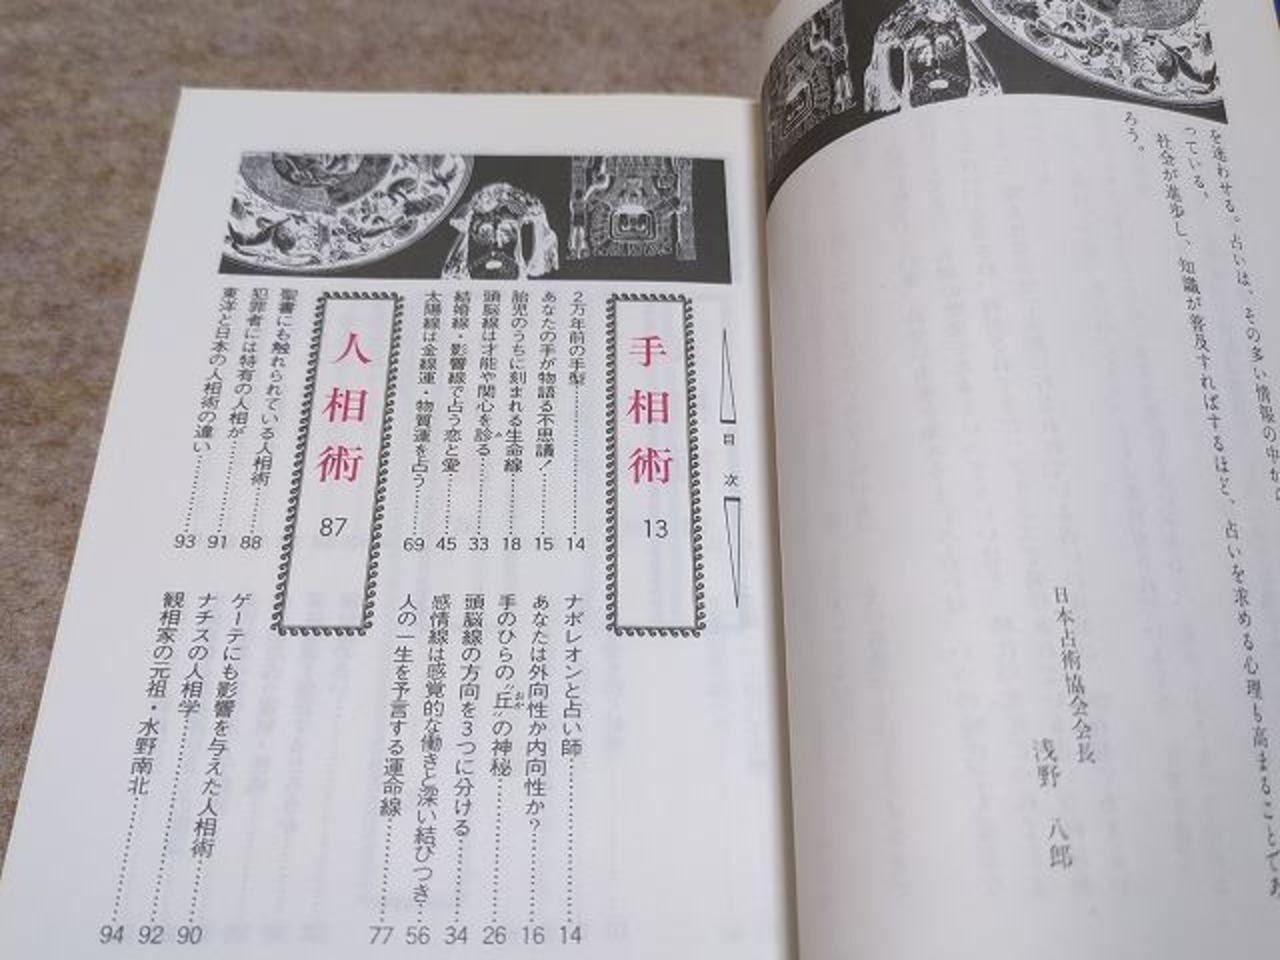 を迷わせる。占いは、その多い情報の中か
っている。
社会が進歩し、知識が普及すればするほど、占いを求める心理も高まることであ
ろう。
日本占術協会会長
浅野 八郎
目 次
手相術 13
2万年前の手型 14
あなたの手が物語る不思議! 15
胎児のうちに刻まれる生命線 18
頭脳線は才能や関心を診る 33
結婚線・影響線で占う恋と愛 45
太陽線は金線運・物質運を占う 69
ナポレオンと占い師 14
あなたは外向性か内向性か? 16
手のひらの〝丘〟の神秘 26
おか
頭脳線の方向を3つに分ける 34
感情線は感覚的な働きと深い結びつき 56
人の一生を予言する運命線 77
人相術 87
聖書にも触れられている人相術 88
犯罪者には特有の人相が 91
東洋と日本の人相術の違い 93
ゲーテにも影響を与えた人相術 90
ナチスの人相学 92
観相家の元祖・水野南北 94